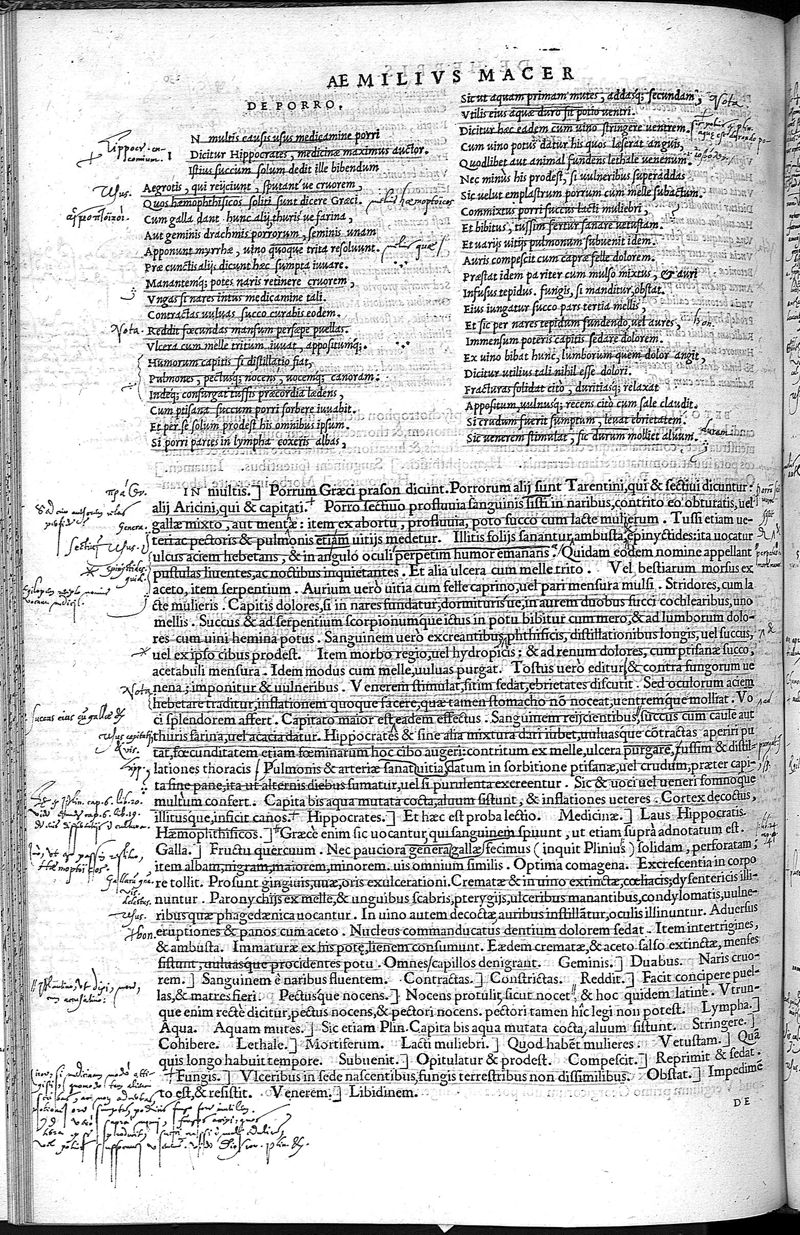 AEMILIVS MACER
DE PORRO.
N multis causis usus medicamine porri
Dicitur Hippocrates, medicinæ maximus auctor.
Istius succum solum dedit ille bibendum
Aegrotis, qui reijciunt, sputant'ue cruorem,
Quos hæmophthisicos soliti sunt dicere Græci.
Cum galla dant hunc alij thuris ue farina,
Aut geminis drachmis porrorum, seminis unam
Apponunt myrrhæ, uino quoque trita resoluunt.
Præ cunctis alij dicunt hæc sumpta iuuare.
Manantemq; potes naris retinere cruorem,
Vngas si nares intus medicamine tali.
Contractas uuluas succo curabis eodem.
Reddit fœcundas mansum persæpe puellas.
Vlcera cum melle tritum iuuat, appositumq;.
Humorum capitis si distillatio fiat,
Pulmones, pectusq; nocens, uocemq; canoram.
Indeq; consurgat tussis præcordia lædens,
Cum ptisana succum porri sorbere iuuabit.
Et per se solum prodest his omnibus ipsum.
Si porri partes in lympha coxeris albas,
Sic ut aquam primam mutes, addasq; secundam,
Vtilis eius aquæ duro sic potio uentri.
Dicitur hæc eadem cum uino stringere uentrem.
Cum uino potus datur his quos læserat anguis,
Quodlibet aut animal fundens lethale uenenum.
Nec minus his prodest, si uulneribus superaddas
Sic uelut emplastrum porrum cum melle subactum.
Commixtus porri succus lacti muliebri,
Et bibitus, tussim fertur sanare uetustam.
Et uarijs uitijs pulmonum subuenit idem.
Auris compescit cum capræ felle dolorem.
Præstat idem pariter cum mulso mixtus, & auri
Infusus tepidus. fungis, si manditur, obstat.
Eius iungatur succo pars tertia mellis,
Et sic per nares tepidum fundendo, uel aures,
Immensum poteris capitis sedare dolorem.
Ex uino bibat hunc, lumborum quem dolor angit,
Dicitur utilius tali nihil esse dolori.
Fracturas solidat citò, duritiasq; relaxat
Appositum, uulnusq; recens citò cum sale claudit.
Si crudum fuerit sumptum, leuat ebrietatem.
Sic uenerem stimulat, sic durum molliet aluum.
Nota
Vsus.
Nota.
IN multis.] Porrum Græci prason dicunt. Porrorum alij sunt Tarentini, qui & sectiui dicuntur:
alij Aricini, qui & capitati. Porro sectiuo profluuia sanguinis sisti in naribus, contrito eo obturatis, uel
gallæ mixto, aut mentæ: item ex abortu, profluuia, poto succo cum lacte mulierum. Tussi etiam ue-
teri ac pectoris & pulmonis etiam uitijs medetur. Illitis folijs sanantur, ambusta, epinyctides: ita uocatur
ulcus aciem hebetans, & in angulo oculi perpetim humor emanans. Quidam eodem nomine appellant
pustulas liuentes, ac noctibus inquietantes. Et alia ulcera cum melle trito. Vel bestiarum morsus ex
aceto, item serpentium. Aurium uerò uitia cum felle caprino, uel pari mensura mulsi. Stridores, cum la
cte mulieris. Capitis dolores, si in nares fundatur, dormiturisue, in aurem duobus succi cochlearibus, uno
mellis. Succus & ad serpentium scorpionumque ictus in potu bibitur cum mero, & ad lumborum dolo-
res cum uini hemina potus. Sanguinem uerò excreantibus, phthisicis, distillationibus longis, uel succus,
uel ex ipso cibus prodest. Item morbo regio, uel hydropicis: & ad renum dolores, cum ptisanæ succo,
acetabuli mensura. Idem modus cum melle, uuluas purgat. Tostus uerò editur & contra fungorum ue
nena: imponitur & uulneribus. Venerem stimulat, sitim sedat, ebrietates discutit. Sed oculorum aciem
hebetare traditur, inflationem quoque facere, quæ tamen stomacho nõ noceat, uentremque molliat. Vo
ci splendorem affert. Capitato maior est eadem effectus. Sanguinem reijcientibus, succus cum caule aut
thuris farina, uel acacia datur. Hippocrates & sine alia mixtura dari iubet, uuluasque cõtractas aperiri pu
tat, fœcunditatem etiam fœminarum hoc cibo augeri: contritum ex melle, ulcera purgare, tussim & distil-
lationes thoracis Pulmonis & arteriæ sanat uitia, datum in sorbitione ptisanæ, uel crudum, præter capi-
ta sine pane, ita ut alternis diebus sumatur, uel si purulenta excreentur. Sic & uoci uel ueneri somnoque
multum confert. Capita bis aqua mutata cocta, aluum sistunt, & inflationes ueteres. Cortex decoctus,
illitusque, inficit canos. Hippocrates.] Et hæc est proba lectio. Medicinæ.] Laus Hippocratis.
Hæmophthisicos.] Græcè enim sic uocantur, qui sanguinem spuunt, ut etiam suprà adnotatum est.
Galla.] Fructu quercuum. Nec pauciora genera gallæ fecimus (inquit Plinius) solidam, perforatam:
item albam, nigram, maiorem, minorem. uis omnium similis. Optima comagena. Excrescentia in corpo
re tollit. Prosunt gingiuis, uuæ, oris exulcerationi. Crematæ & in uino extinctæ, cœliacis, dysentericis illi-
nuntur. Paronychijs ex melle, & unguibus scabris, pterygijs, ulceribus manantibus, condylomatis, uulne-
ribus quæ phagedænica uocantur. In uino autem decoctæ, auribus instillãtur, oculis illinuntur. Aduersus
eruptiones & panos cum aceto. Nucleus commanducatus dentium dolorem sedat. Item intertrigines,
& ambusta. Immaturæ ex his potę, lienem consumunt. Eædem crematæ, & aceto salso extinctæ, menses
sistunt, uuluasque procidentes potu. Omnes capillos denigrant. Geminis.] Duabus. Naris cruo-
rem.] Sanguinem è naribus fluentem. Contractas.] Constrictas. Reddit.] Facit concipere puel-
las, & matres fieri. Pectusque nocens.] Nocens protulit, sicut nocet, & hoc quidem latinè. Vtrun-
que enim rectè dicitur, pectus nocens, & pectori nocens. pectori tamen hîc legi non potest. Lympha.]
Aqua. Aquam mutes.] Sic etiam Plin. Capita bis aqua mutata cocta, aluum sistunt. Stringere.]
Cohibere. Lethale.] Mortiferum. Lacti muliebri.] Quod habẽt mulieres. Vetustam.] Quā
quis longo habuit tempore. Subuenit.] Opitulatur & prodest. Compescit.] Reprimit & sedat.
Fungis.] Vlceribus in sede nascentibus, fungis terrestribus non dissimilibus. Obstat.] Impedimẽ
to est, & resistit. Venerem.] Libidinem.
DE